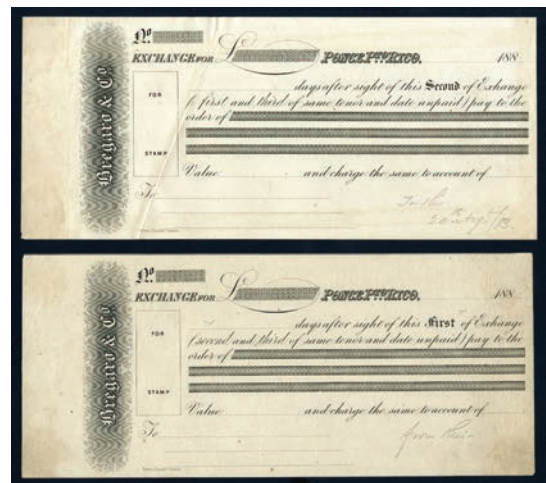 Bregaro & Co.
No
EXCHANGE FOR £ PONCE Pto. RICO. 188
days after sight of this Second of Exchange
FOR
(first and third of same tenor and date unpaid) pay to the
order of
STAMP
Value and charge the same to account of
To
Bregaro & Co.
No
EXCHANGE FOR £ PONCE Pto. RICO. 188
days after sight of this First of Exchange
FOR
(second and third of same tenor and date unpaid) pay to the
order of
STAMP
Value and charge the same to account of
To